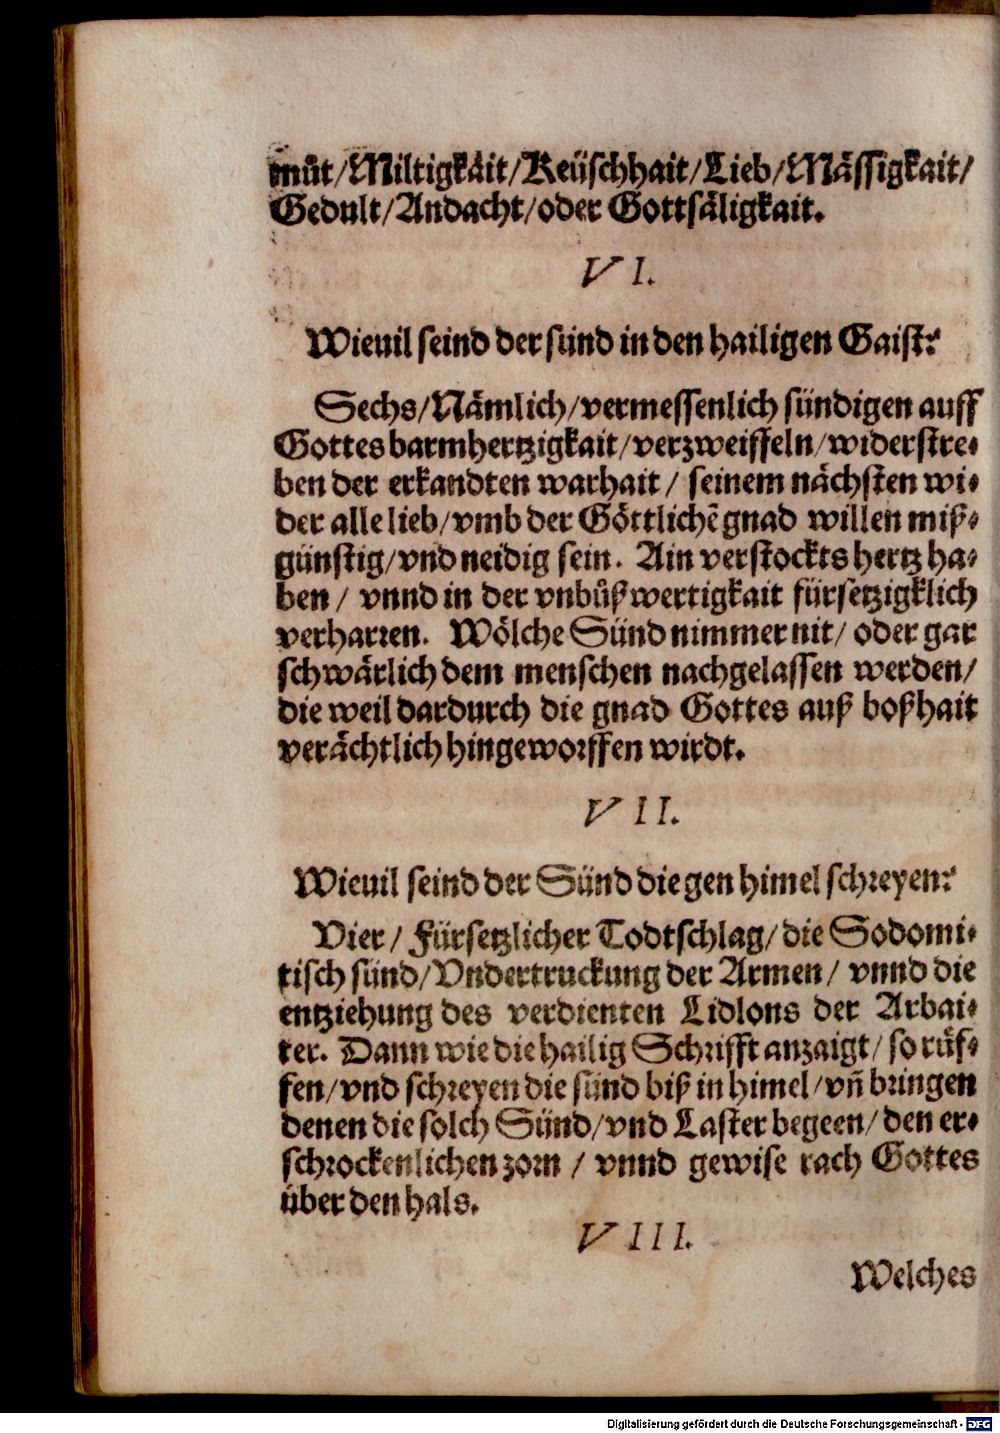 můt/Miltigkäit/Keüschhait/Lieb/Mässigkait/
Gedult/Andacht/oder Gottsäligkait.
VI.
Wieuil seind der sünd in den hailigen Gaist?
Sechs/Nämlich/vermessenlich sündigen auff
Gottes barmhertzigkait/verzweiffeln/widerstre-
ben der erkandten warhait/ seinem nächsten wi-
der alle lieb/vmb der Göttlichē gnad willen miß-
günstig/vnd neidig sein. Ain verstockts hertz ha-
ben/ vnnd in der vnbůßwertigkait fürsetzigklich
verharren. Wölche Sünd nimmer nit/ oder gar
schwärlich dem menschen nachgelassen werden/
die weil dardurch die gnad Gottes auß boßhait
verächtlich hingeworffen wirdt.
VII.
Wieuil seind der Sünd die gen himel schreyen?
Vier/ Fürsetzlicher Todtschlag/die Sodomi-
tisch sünd/Vndertruckung der Armen/ vnnd die
entziehung des verdienten Lidlons der Arbai-
ter. Dann wie die hailig Schrifft anzaigt/so růf-
fen/vnd schreyen die sünd biß in himel/vñ bringen
denen die solch Sünd/vnd Laster begeen/den er-
schrockenlichen zorn/ vnnd gewise rach Gottes
über den hals.
VIII.
Welches
Digitalisierung gefördert durch die Deutsche Forschungsgemeinschaft - DFG